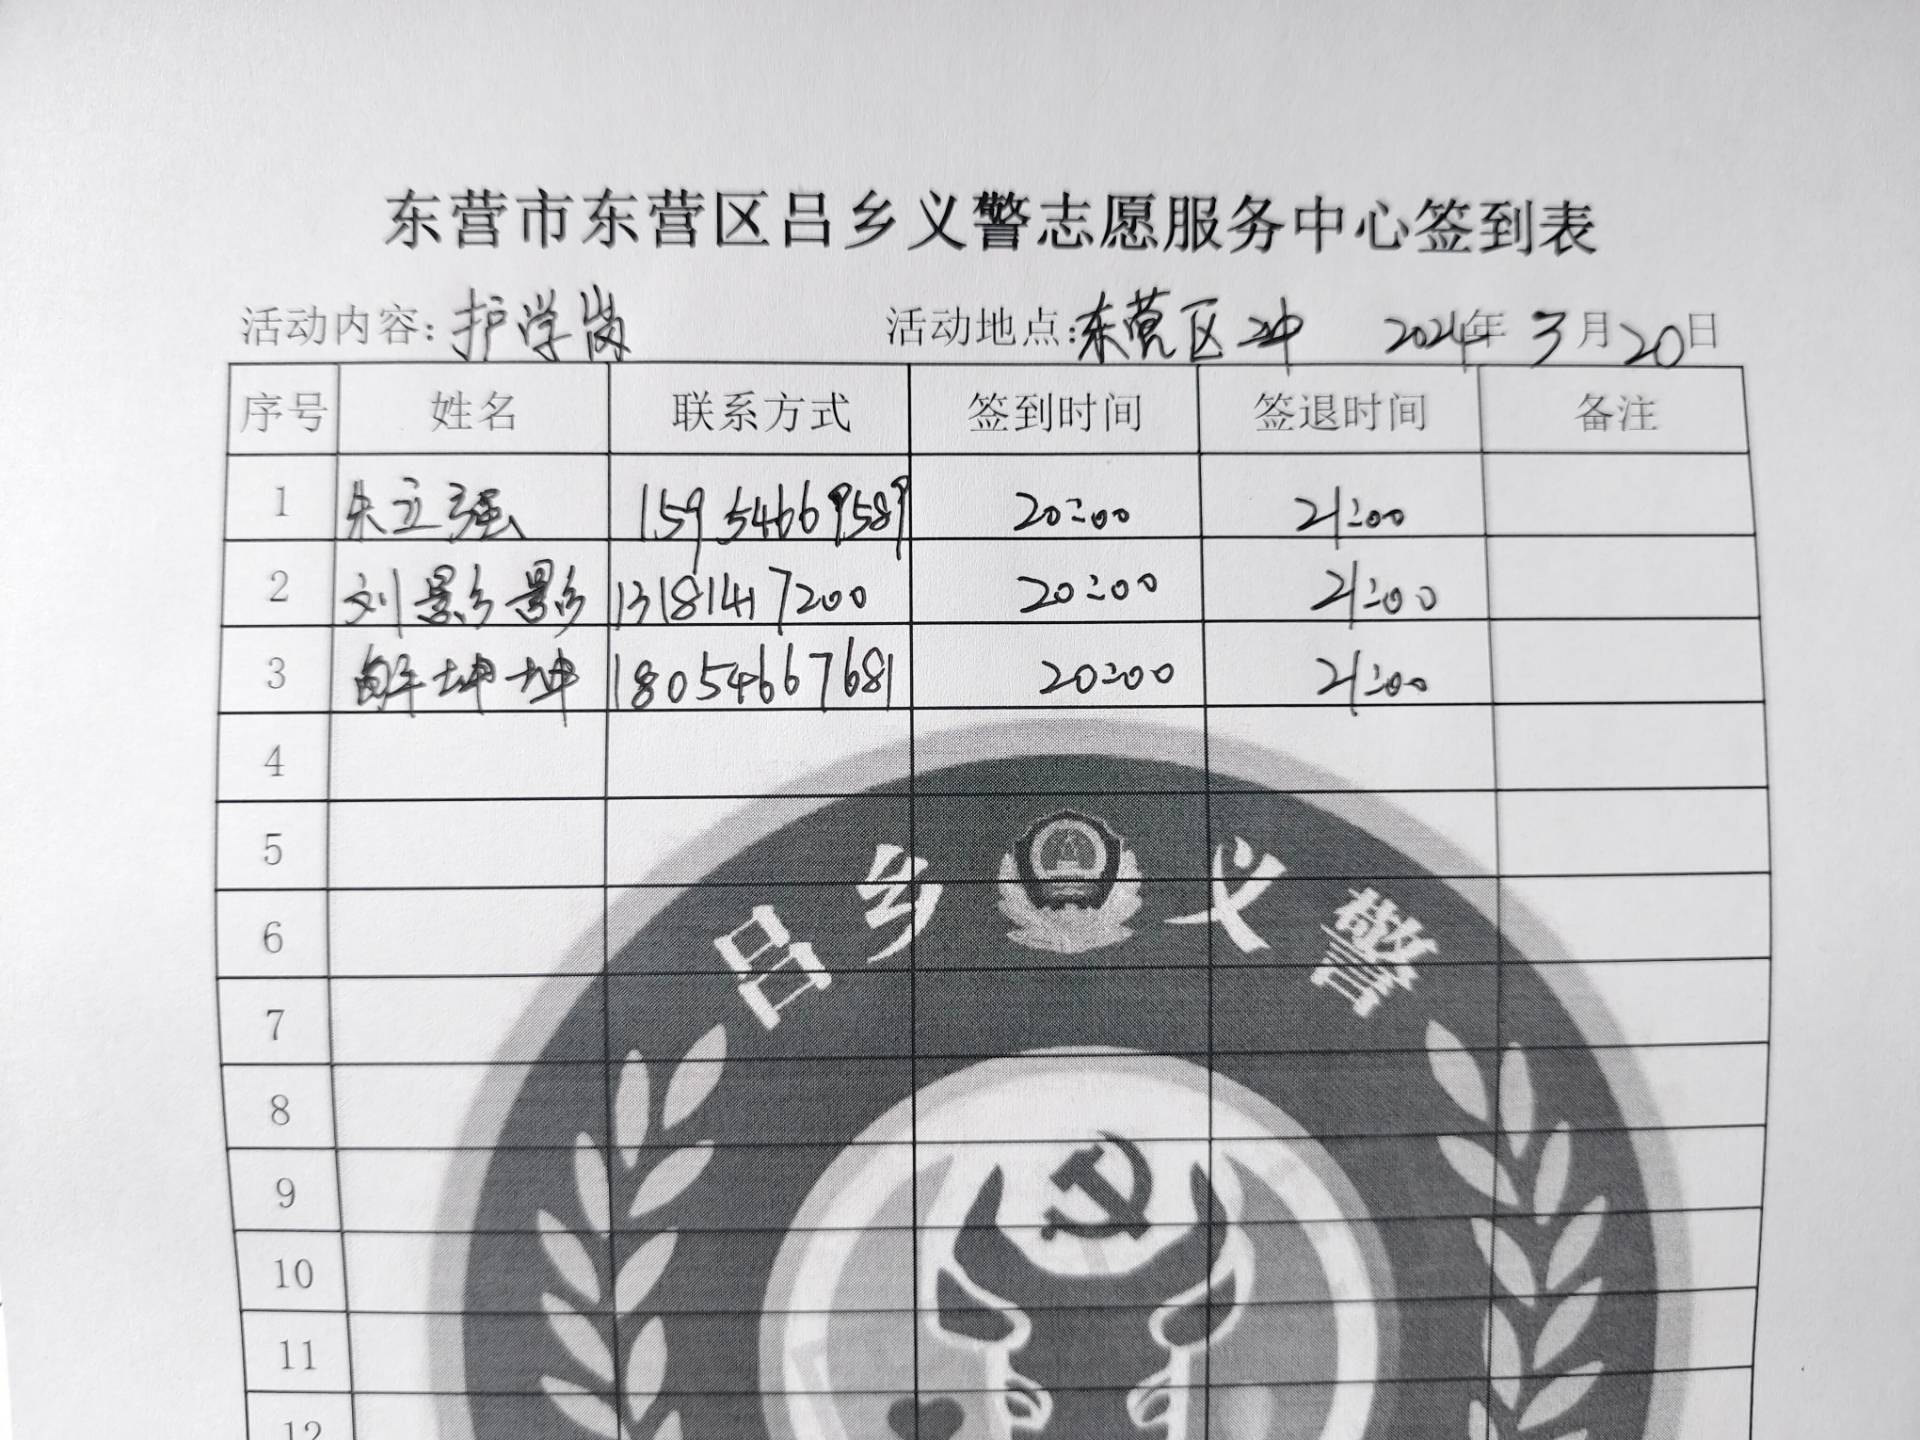 东营市东营区吕乡义警志愿服务中心签到表
活动内容：护学岗 活动地点：东营区二中 2024年3月20日
序号 姓名 联系方式 签到时间 签退时间 备注
1 朱立强 15954669589 20:00 21:00
2 刘影影 13181417200 20:00 21:00
3 解坤坤 18054667681 20:00 21:00
4
5
6
7
8
9
10
11
12
吕乡义警